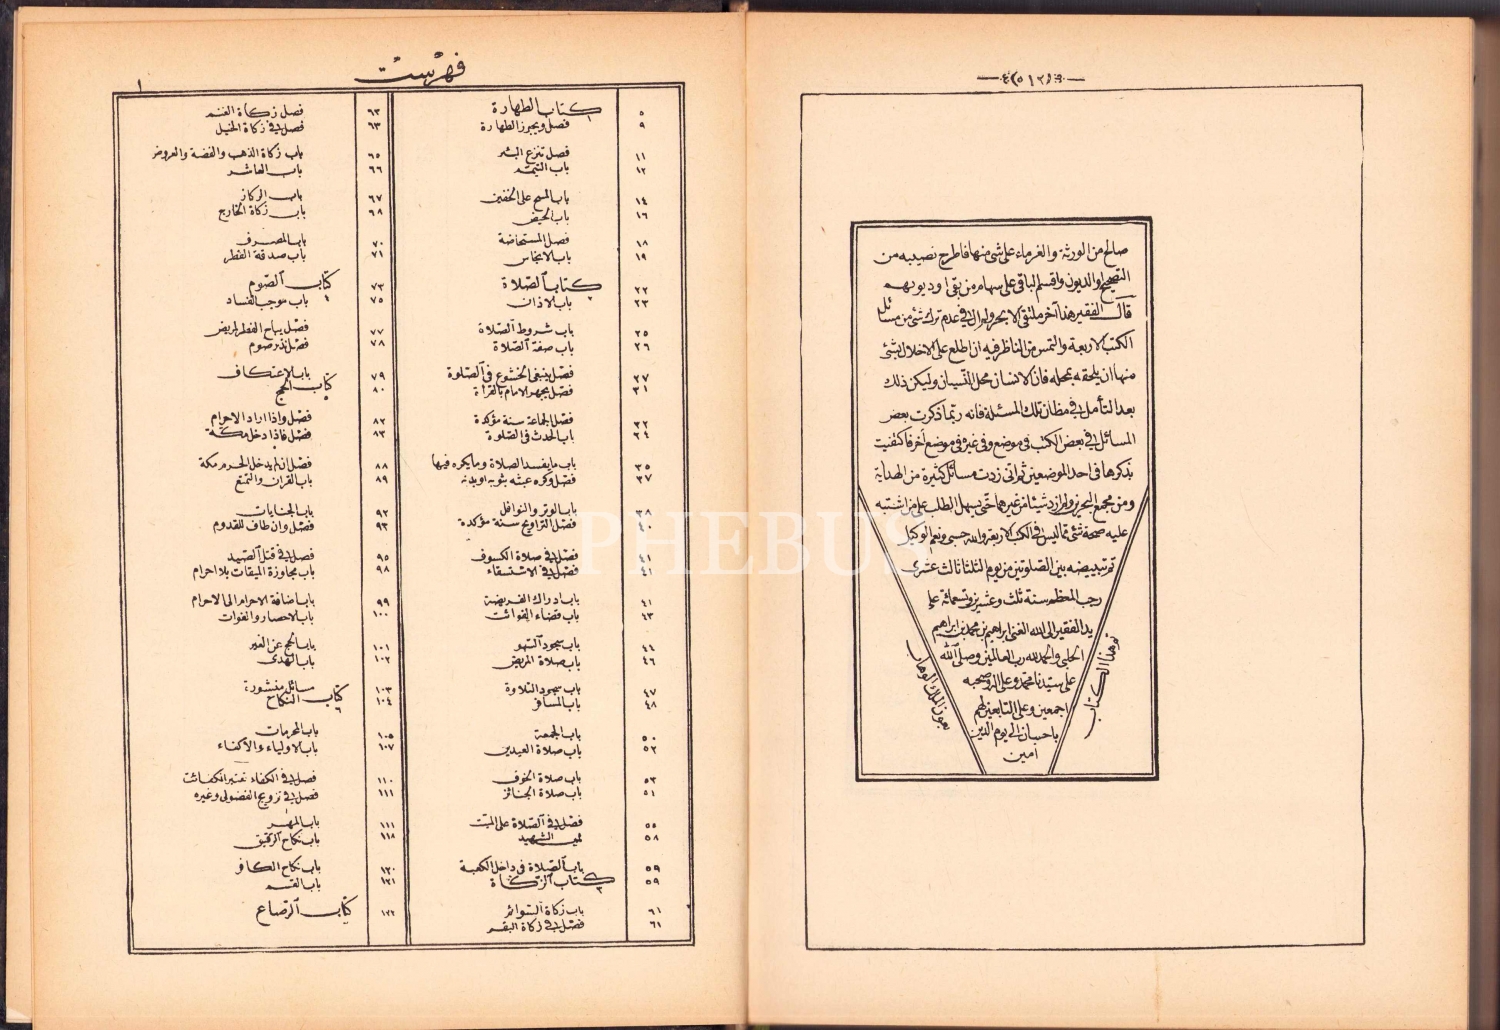 صالح من الورثة والغرماء على شئ منها فاطرح نصيبه من
التصحيح او الديون واقسم الباقى على سهام من بقى او ديونهم
قال الفقير هذا آخر ملتقى الابحر ولم ال فى عدم ترك شئ من مسائل
الكتب الاربعة والتمس من الناظر فيه ان اطلع على الاخلال بشئ
منها ان يلحقه بمحله فان الانسان محل النسيان وليكن ذلك
بعد التأمل فى مظان تلك المسئلة فانه ربما ذكرت بعض
المسائل فى بعض الكتب فى موضع وفى غيره فى موضع آخر فاكتفيت
بذكرها فى احد الموضعين ثم انى زدت مسائل كثيرة من الهداية
ومن مجمع البحرين ولم ازد شيئا من غيرهما حتى يسهل الطلب على من اشتبه
عليه صحة شئ مما ليس فى الكتب الاربعة والله حسبى ونعم الوكيل
تم تبييضه بين الصلوتين من يوم الثلثا ثالث عشرى
رجب المعظم سنة ثلث وعشرين وتسعمائة على
يد الفقير الى الله الغنى ابراهيم بن محمد بن ابراهيم
الحلبى والحمد لله رب العالمين وصلى الله
على سيدنا محمد وعلى اله وصحبه
اجمعين وعلى التابعين لهم
باحسان الى يوم الدين
امين
تم هذا الكتاب
بعون الملك الوهاب
فهرست
١
٥ كتاب الطهارة
٩ فصل ويجوز الطهارة
١١ فصل تنزح البئر
١٢ باب التيمم
١٤ باب المسح على الخفين
١٦ باب الحيض
١٨ فصل المستحاضة
١٩ باب الانجاس
٢٢ كتاب الصلاة
٢٣ باب الاذان
٢٥ باب شروط الصلاة
٢٦ باب صفة الصلاة
٢٧ فصل ينبغى الخشوع فى الصلوة
٣١ فصل يجهر الامام بالقراءة
٣٢ فصل الجماعة سنة مؤكدة
٣٤ باب الحدث فى الصلوة
٣٥ باب ما يفسد الصلاة وما يكره فيها
٣٧ فصل وكره عبثه بثوبه او بدنه
٣٨ باب الوتر والنوافل
٤٠ فصل التراويح سنة مؤكدة
٤١ فصل فى صلاة الكسوف
٤١ فصل فى الاستسقاء
٤١ باب ادراك الفريضة
٤٣ باب قضاء الفوائت
٤٤ باب سجود السهو
٤٦ باب صلاة المريض
٤٧ باب سجود التلاوة
٤٨ باب المسافر
٥٠ باب الجمعة
٥٢ باب صلاة العيدين
٥٣ باب صلاة الخوف
٥٤ باب صلاة الجنائز
٥٥ فصل فى الصلاة على الميت
٥٨ الشهيد
٥٩ باب الصلاة فى داخل الكعبة
٥٩ كتاب الزكاة
٦١ باب زكاة السوائم
٦١ فصل فى زكاة البقر
٦٣ فصل زكاة الغنم
٦٣ فصل فى زكاة الخيل
٦٥ باب زكاة الذهب والفضة والعروض
٦٦ باب العاشر
٦٧ باب الركاز
٦٨ باب زكاة الخارج
٧٠ باب المصرف
٧١ باب صدقة الفطر
٧٣ كتاب الصوم
٧٥ باب موجب الفساد
٧٧ فصل يباح الفطر لمريض
٧٨ فصل نذر صوم
٧٩ باب الاعتكاف
٨٠ كتاب الحج
٨٢ فصل واذا اراد الاحرام
٨٣ فصل فاذا دخل مكة
٨٨ فصل ان لم يدخل المحرم مكة
٨٩ باب القران والتمتع
٩٢ باب الجنايات
٩٣ فصل وان طاف للقدوم
٩٥ فصل فى قتل الصيد
٩٨ باب مجاوزة الميقات بلا احرام
٩٩ باب اضافة الاحرام الى الاحرام
١٠٠ باب الاحصار والفوات
١٠١ باب الحج عن الغير
١٠٢ باب الهدى
١٠٣ مسائل منشورة
١٠٤ كتاب النكاح
١٠٥ باب المحرمات
١٠٧ باب الاولياء والاكفاء
١١٠ فصل فى الكفاء تعتبر الكفائت
١١١ فصل فى تزويج الفضولى وغيره
١١١ باب المهر
١١٨ باب نكاح الرقيق
١٢٠ باب نكاح الكافر
١٢١ باب القسم
١٢٢ كتاب الرضاع
PHEBUS